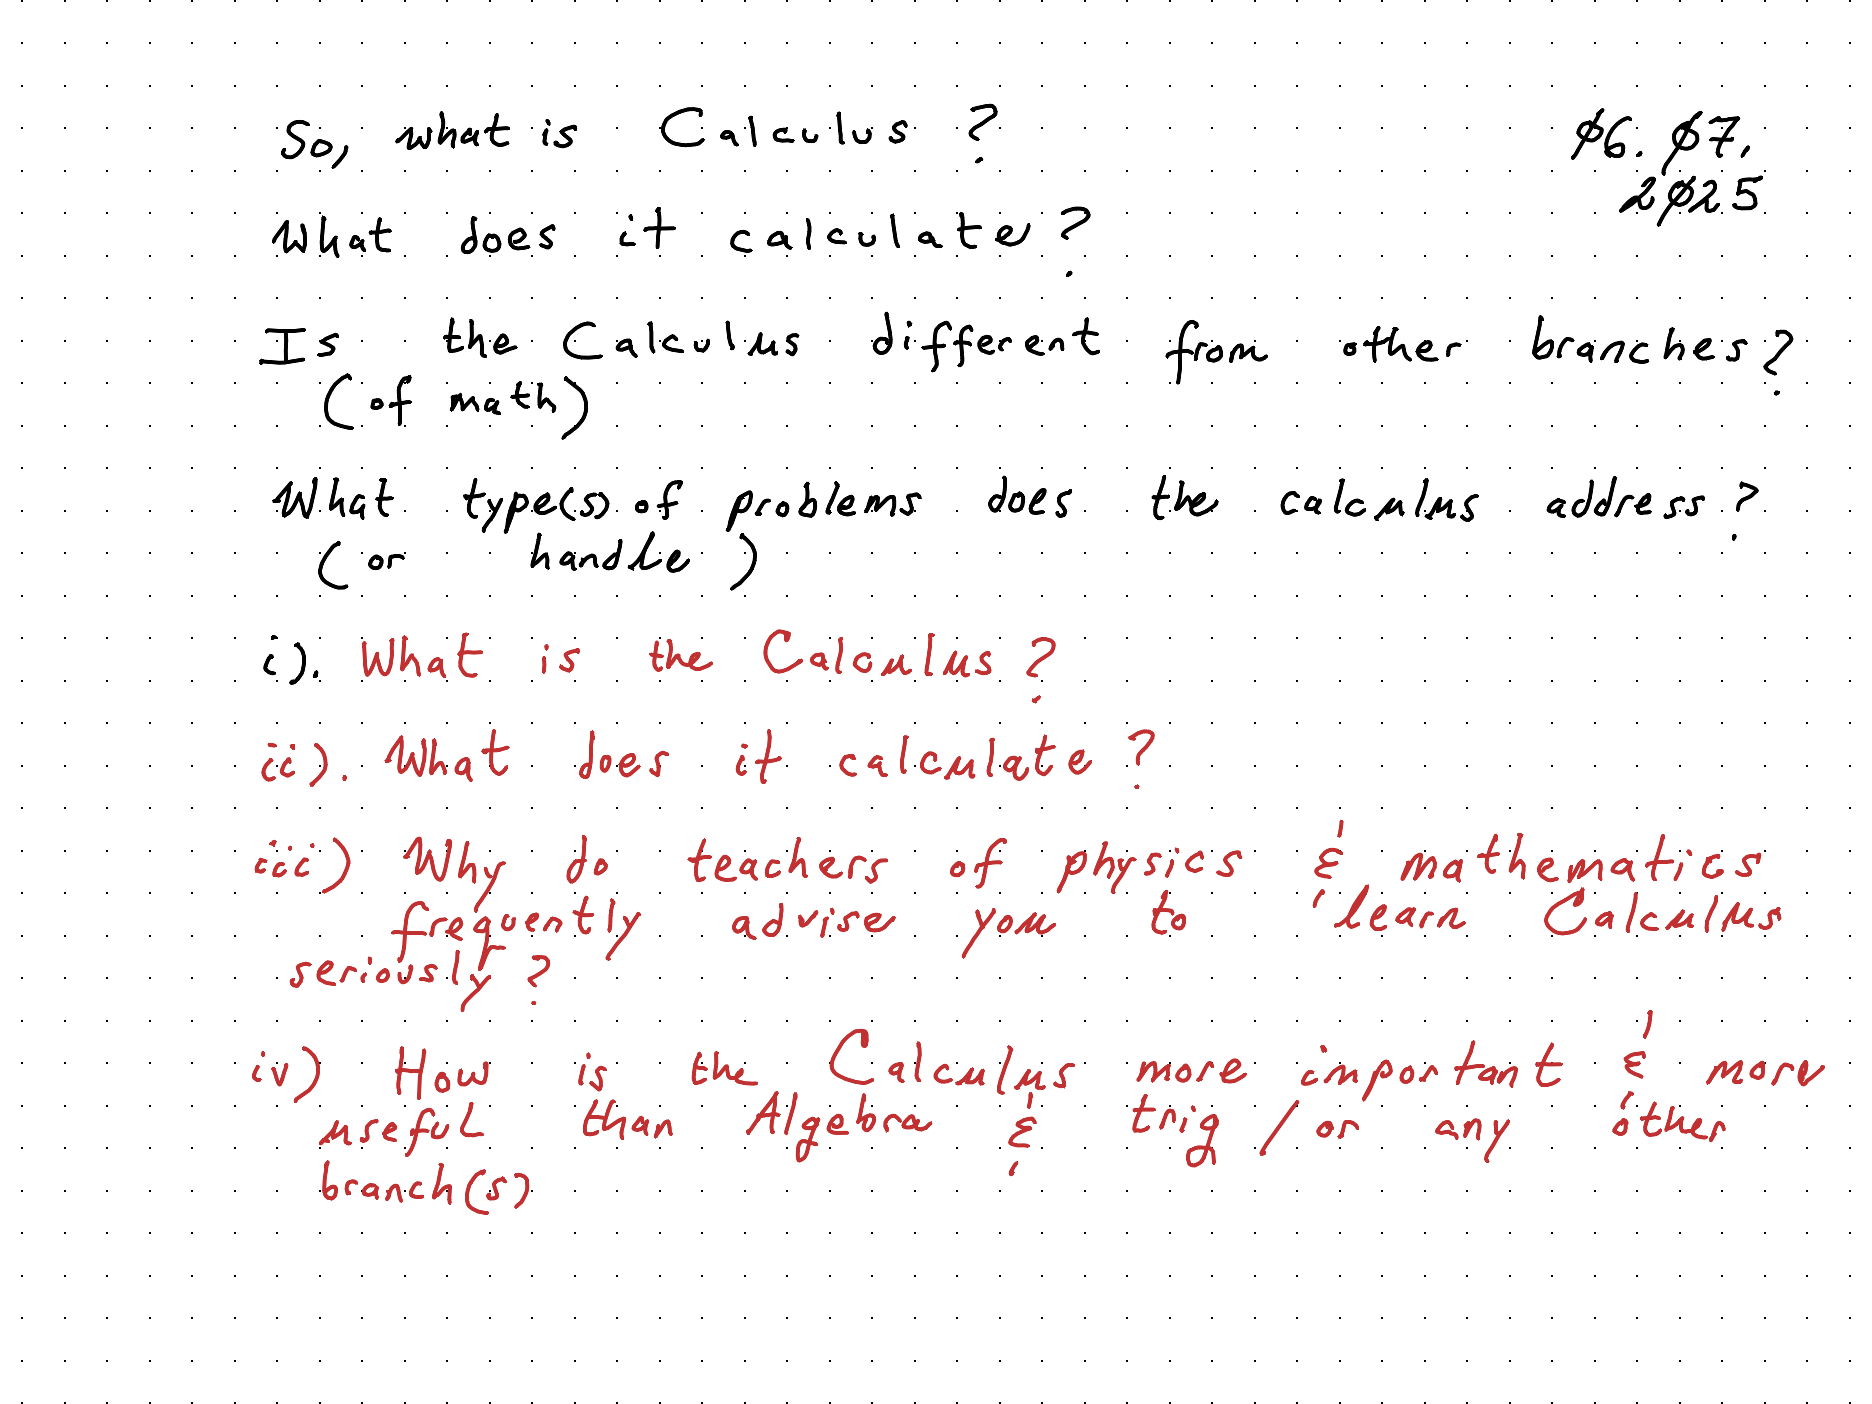 So, what is Calculus ?
06. 07.
2025
What does it calculate ?
Is the Calculus different from other branches ?
(of math)
What type(s) of problems does the calculus address ?
(or handle)
i). What is the Calculus ?
ii). What does it calculate ?
iii) Why do teachers of physics & mathematics
frequently advise you to learn Calculus
seriously ?
iv) How is the Calculus more important & more
useful than Algebra & trig / or any other
branch(s)